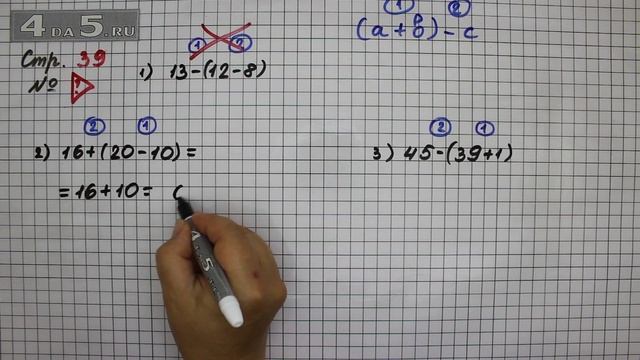 4 DA 5.RU
Стр. 39
№ ?
1 2
1) 13-(12-8)
1 2
(a+b)-c
2 1
2) 16+(20-10)=
=16+10= (
2 1
3) 45-(39+1)
4 5